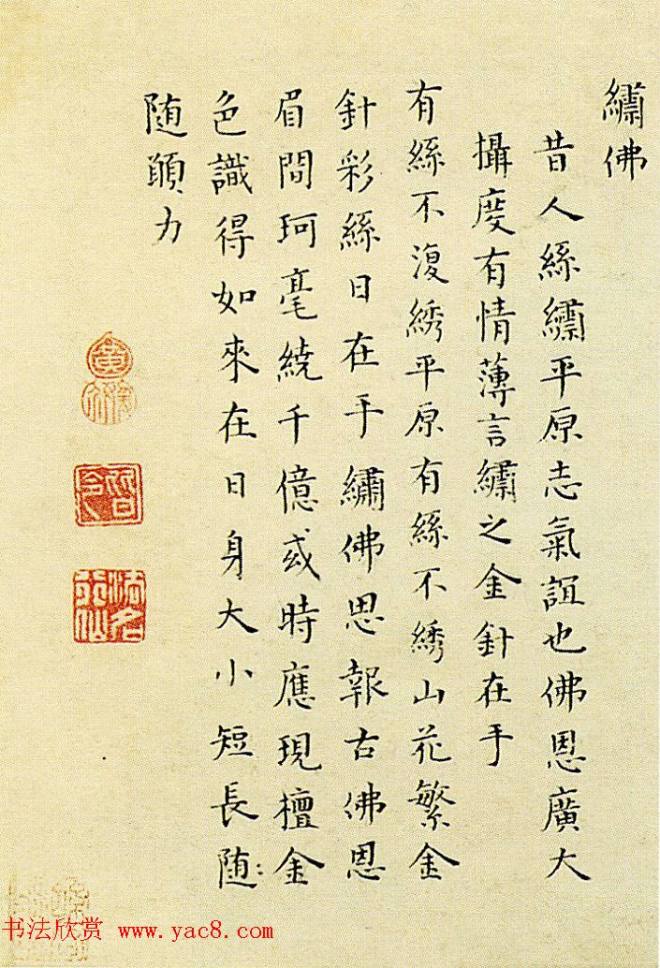 繡佛
昔人絲繡平原志氣誼也佛恩廣大
攝度有情薄言繡之金針在手
有絲不復綉平原有絲不綉山花繁金
針彩絲日在手繡佛思報古佛恩
眉間珂毫繞千億或時應現檀金
色識得如來在日身大小短長随:
随願力
书法欣赏 www.yac8.com